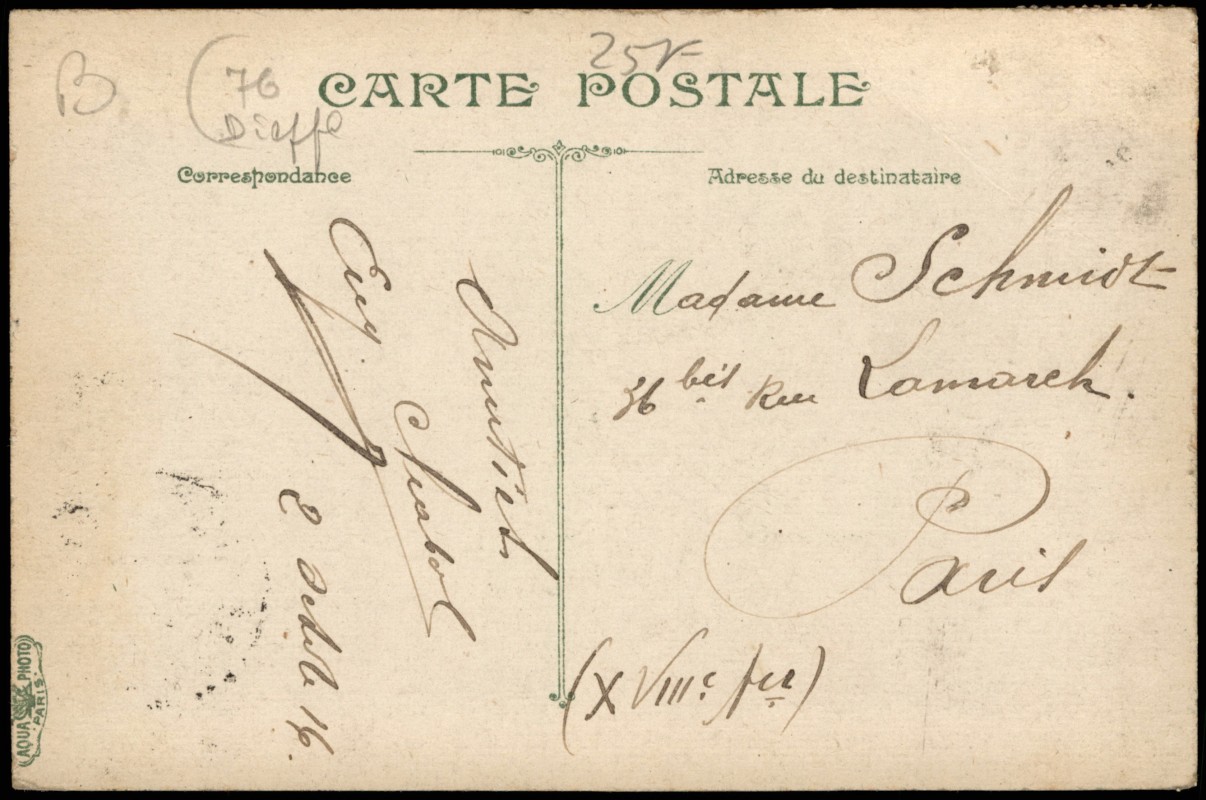 B
76
Dieppe
25F
CARTE POSTALE
Correspondance
Adresse du destinataire
Amitiés
Eug. Chabol
2
16.
Madame Schmidt
36 bis Rue Lamarck.
Paris
(XVIIIe)
AQUA PHOTO
PARIS